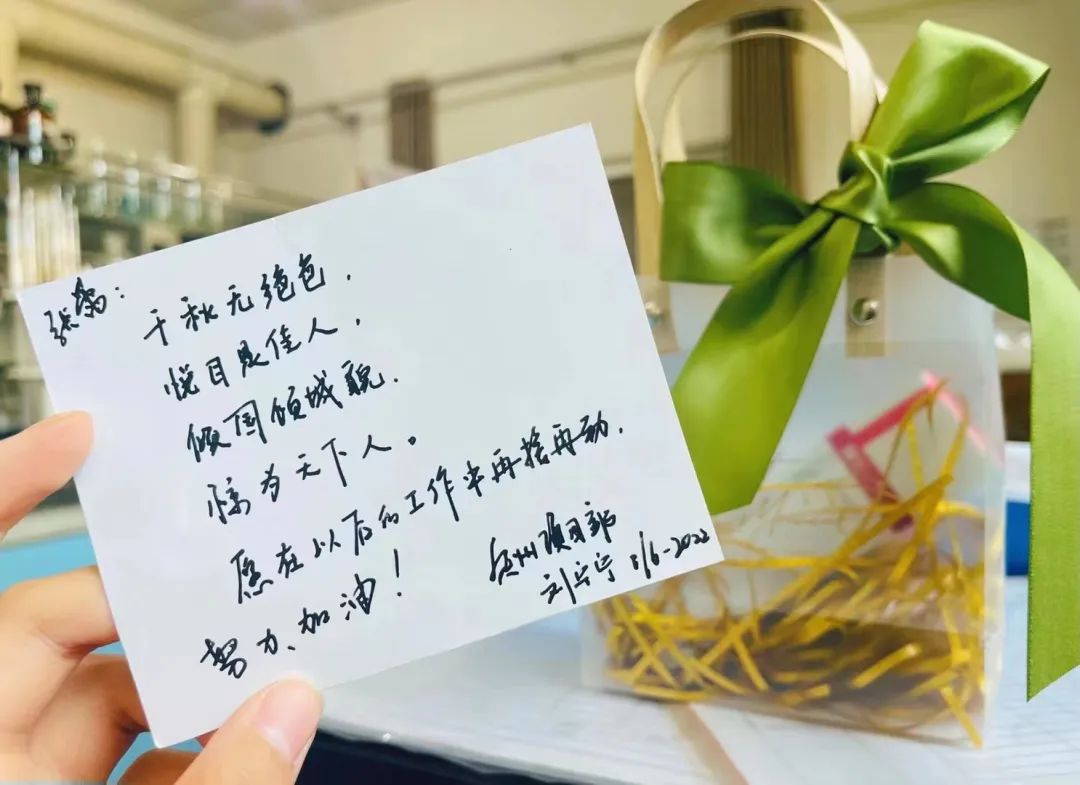 张菊：
千秋无绝色，
悦目是佳人，
倾国倾城貌，
惊为天下人。
愿在以后的工作中再接再励，
努力、加油！
项目部
刘宁宁 8/6-2022